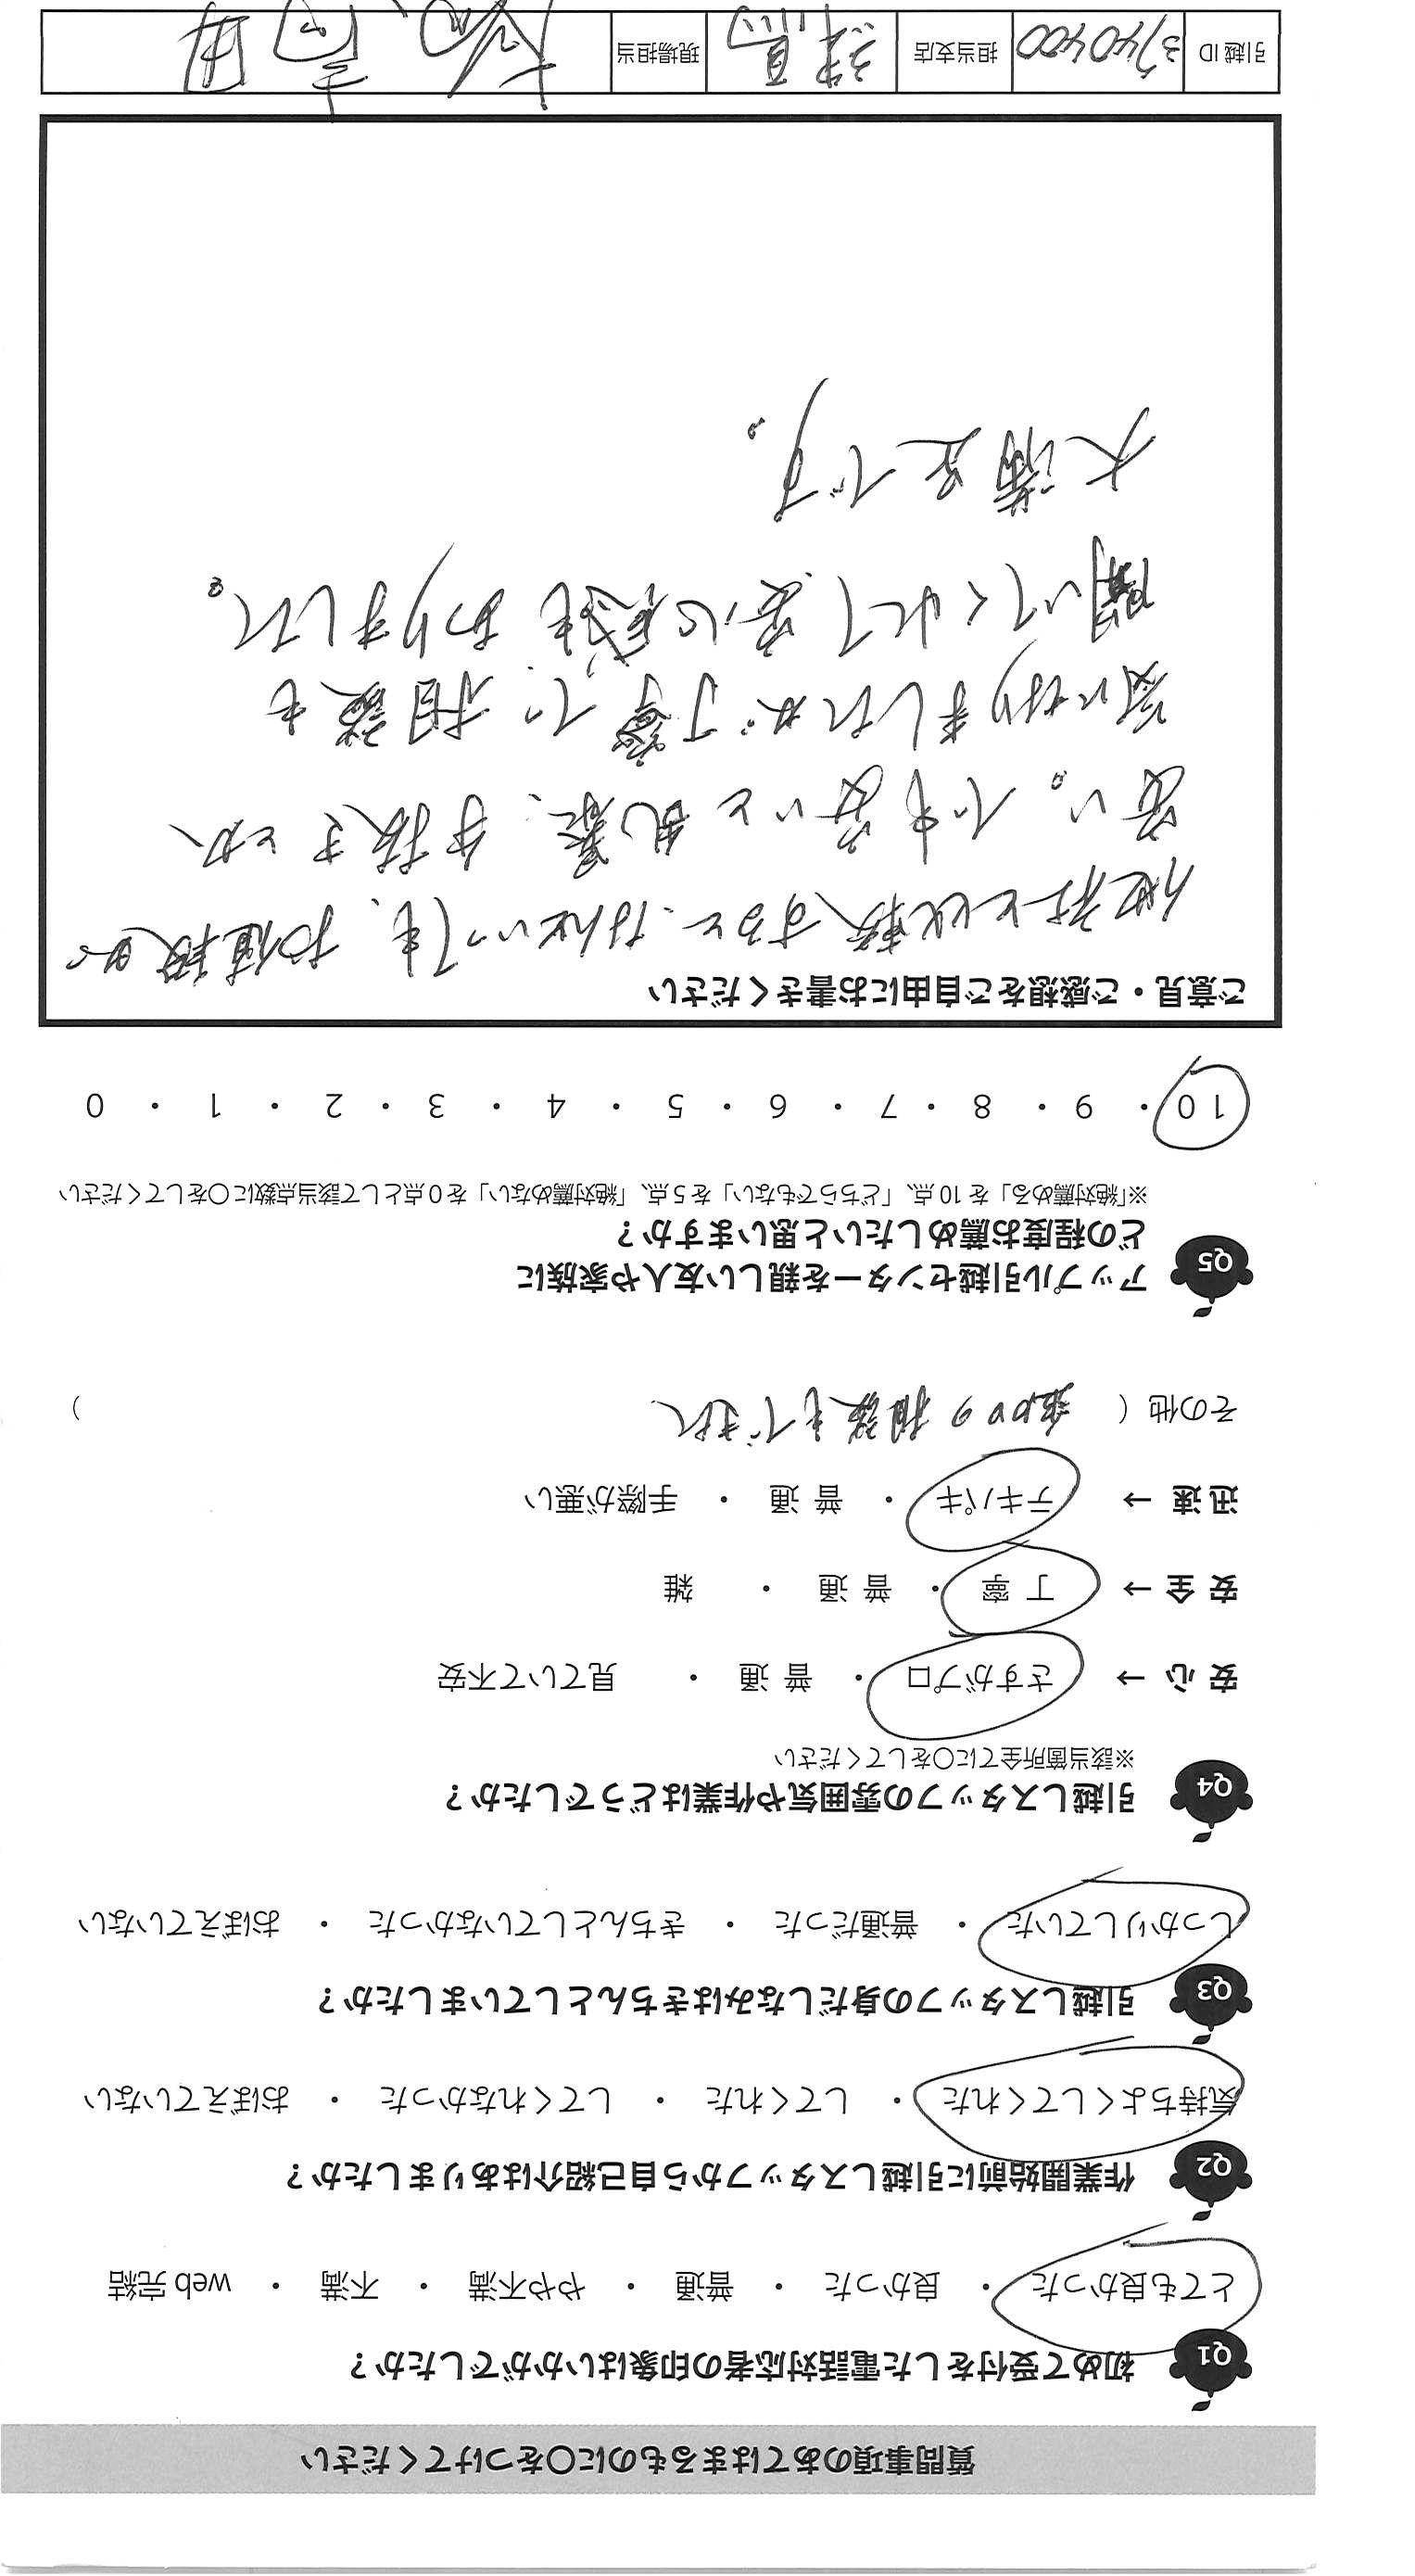 質問事項のあてはまるものに〇をつけてください
Q1 初めて受付をした電話対応者の印象はいかがでしたか？
とても良かった ・ 良かった ・ 普通 ・ やや不満 ・ 不満 ・ web 完結
Q2 作業開始前に引越しスタッフから自己紹介はありましたか？
気持ちよくしてくれた ・ してくれた ・ してくれなかった ・ おぼえていない
Q3 引越しスタッフの身だしなみはきちんとしていましたか？
しっかりしていた ・ 普通だった ・ きちんとしていなかった ・ おぼえていない
Q4 引越しスタッフの雰囲気や作業はどうでしたか？
※該当箇所全てに〇をしてください
安心 → さすがプロ ・ 普通 ・ 見ていて不安
安全 → 丁寧 ・ 普通 ・ 雑
迅速 → テキパキ ・ 普通 ・ 手際が悪い
その他（ 相談もできた ）
Q5 アップル引越センターを親しい友人や家族に
どの程度お薦めしたいと思いますか？
※「絶対薦める」を 10 点、「どちらでもない」を 5 点、「絶対薦めない」を 0 点として該当点数に〇をしてください
10 ・ 9 ・ 8 ・ 7 ・ 6 ・ 5 ・ 4 ・ 3 ・ 2 ・ 1 ・ 0
ご意見・ご感想をご自由にお書きください
他社と比較すると、なんといっても、お値段が
安い。でも安いと乱暴、手抜きとか
気になりましたが丁寧で、相談も
聞いてくれて安心感もありました。
大満足です。
引越 ID 3740400 担当支店 練馬 現場担当